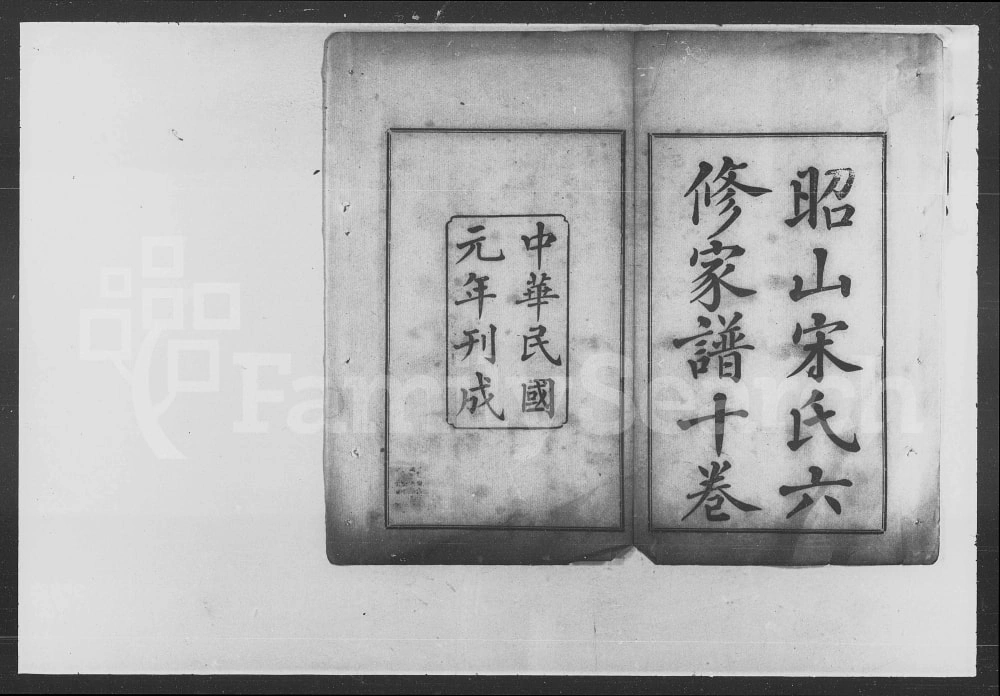 昭山宋氏六
修家譜十卷
中華民國
元年刊成
FamilySearch